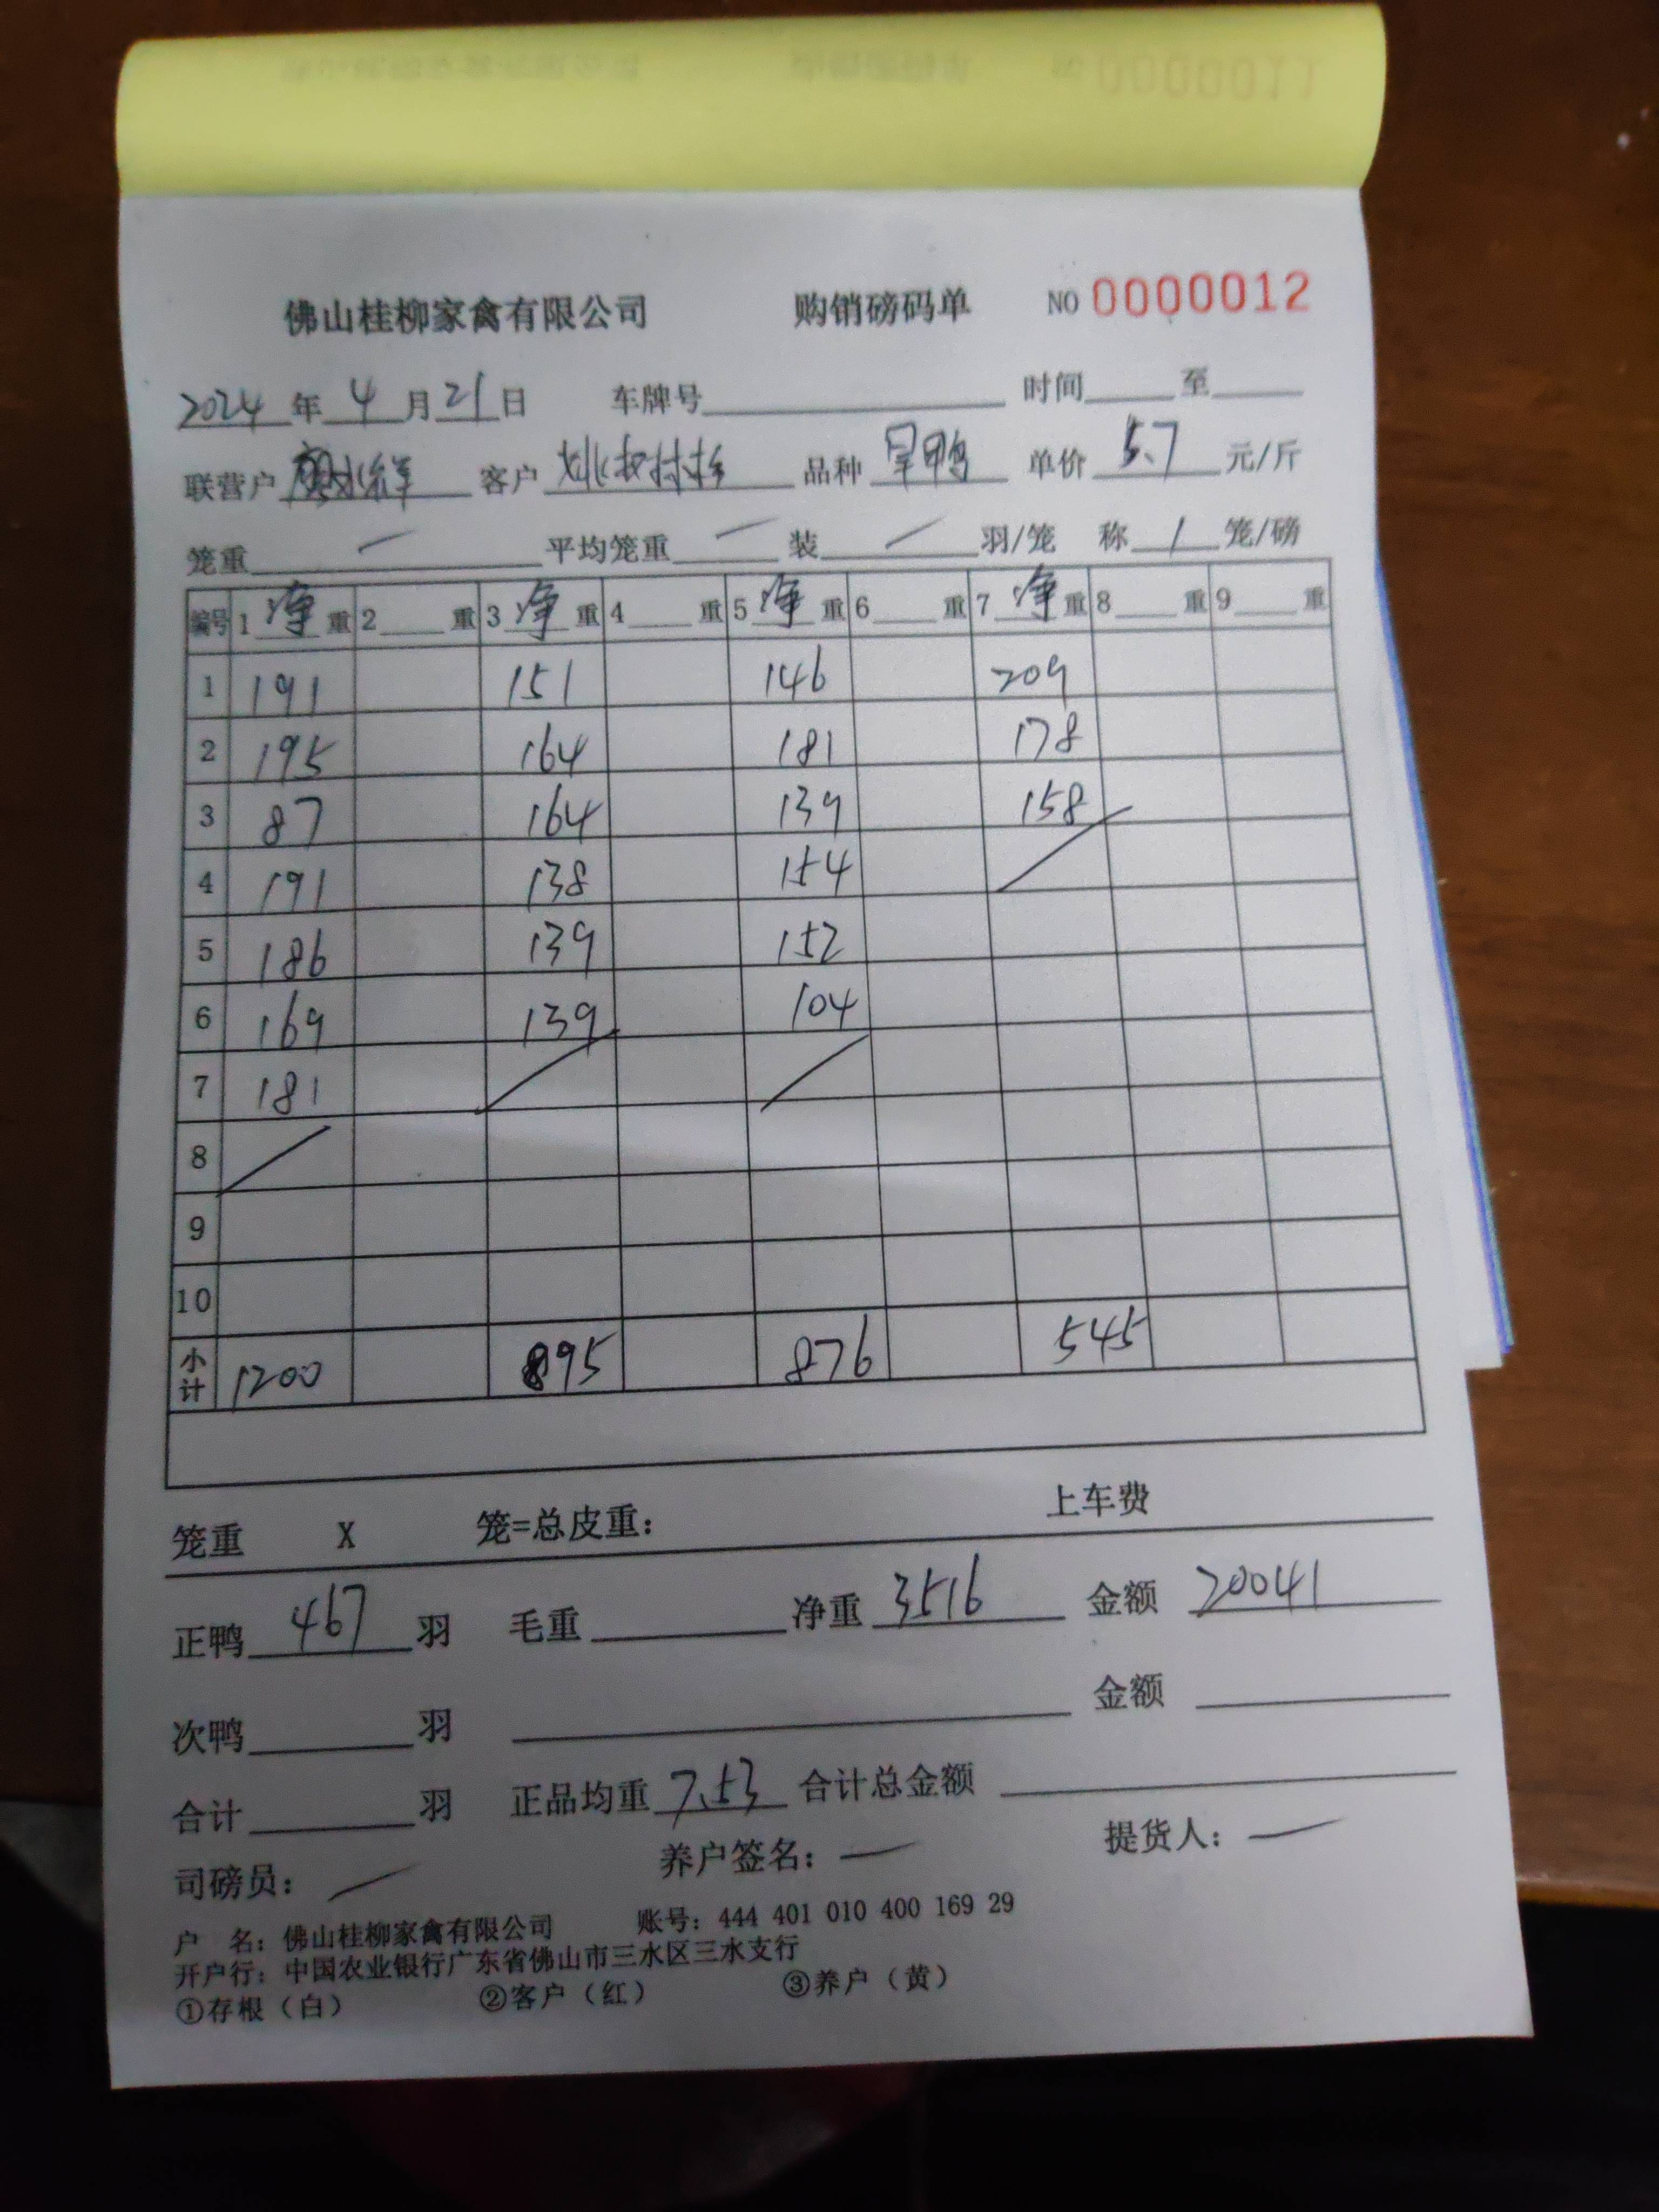 佛山桂柳家禽有限公司 购销磅码单 NO 0000012
2024 年 4 月 21 日 车牌号 时间 至
联营户 客户 品种 旱鸭 单价 5.7 元/斤
笼重 — 平均笼重 — 装 — 羽/笼 称 1 笼/磅
编号 1 净 重 2 重 3 净 重 4 重 5 净 重 6 重 7 净 重 8 重 9 重
1 191 151 146 209
2 195 164 181 178
3 87 164 139 158
4 191 138 154
5 186 139 152
6 169 139 104
7 181
8
9
10
小计 1200 895 876 545
笼重 X 笼=总皮重: 上车费
正鸭 467 羽 毛重 净重 3516 金额 20041
次鸭 羽 金额
合计 羽 正品均重 7.53 合计总金额
司磅员: — 养户签名: — 提货人: —
户 名: 佛山桂柳家禽有限公司 账号: 444 401 010 400 169 29
开户行: 中国农业银行广东省佛山市三水区三水支行
①存根（白） ②客户（红） ③养户（黄）